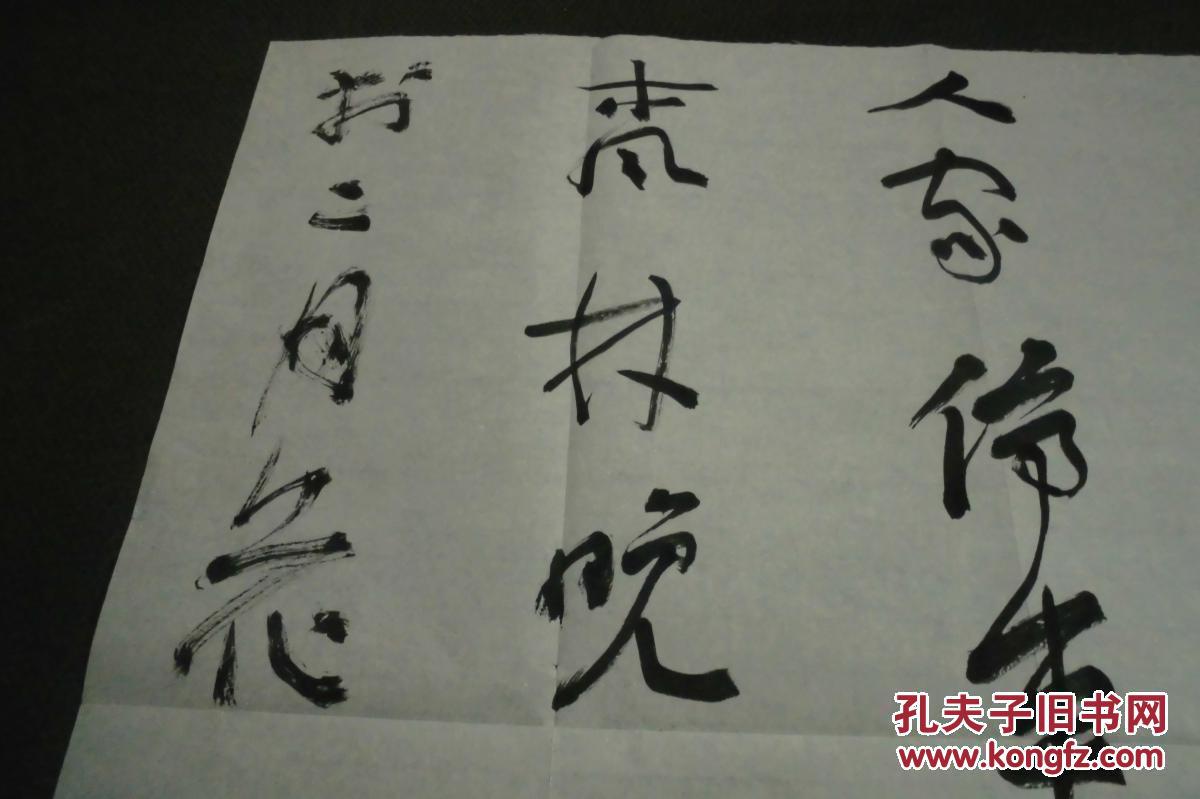 人家停車
楓林晚
於二月花
孔夫子旧书网
www.kongfz.com